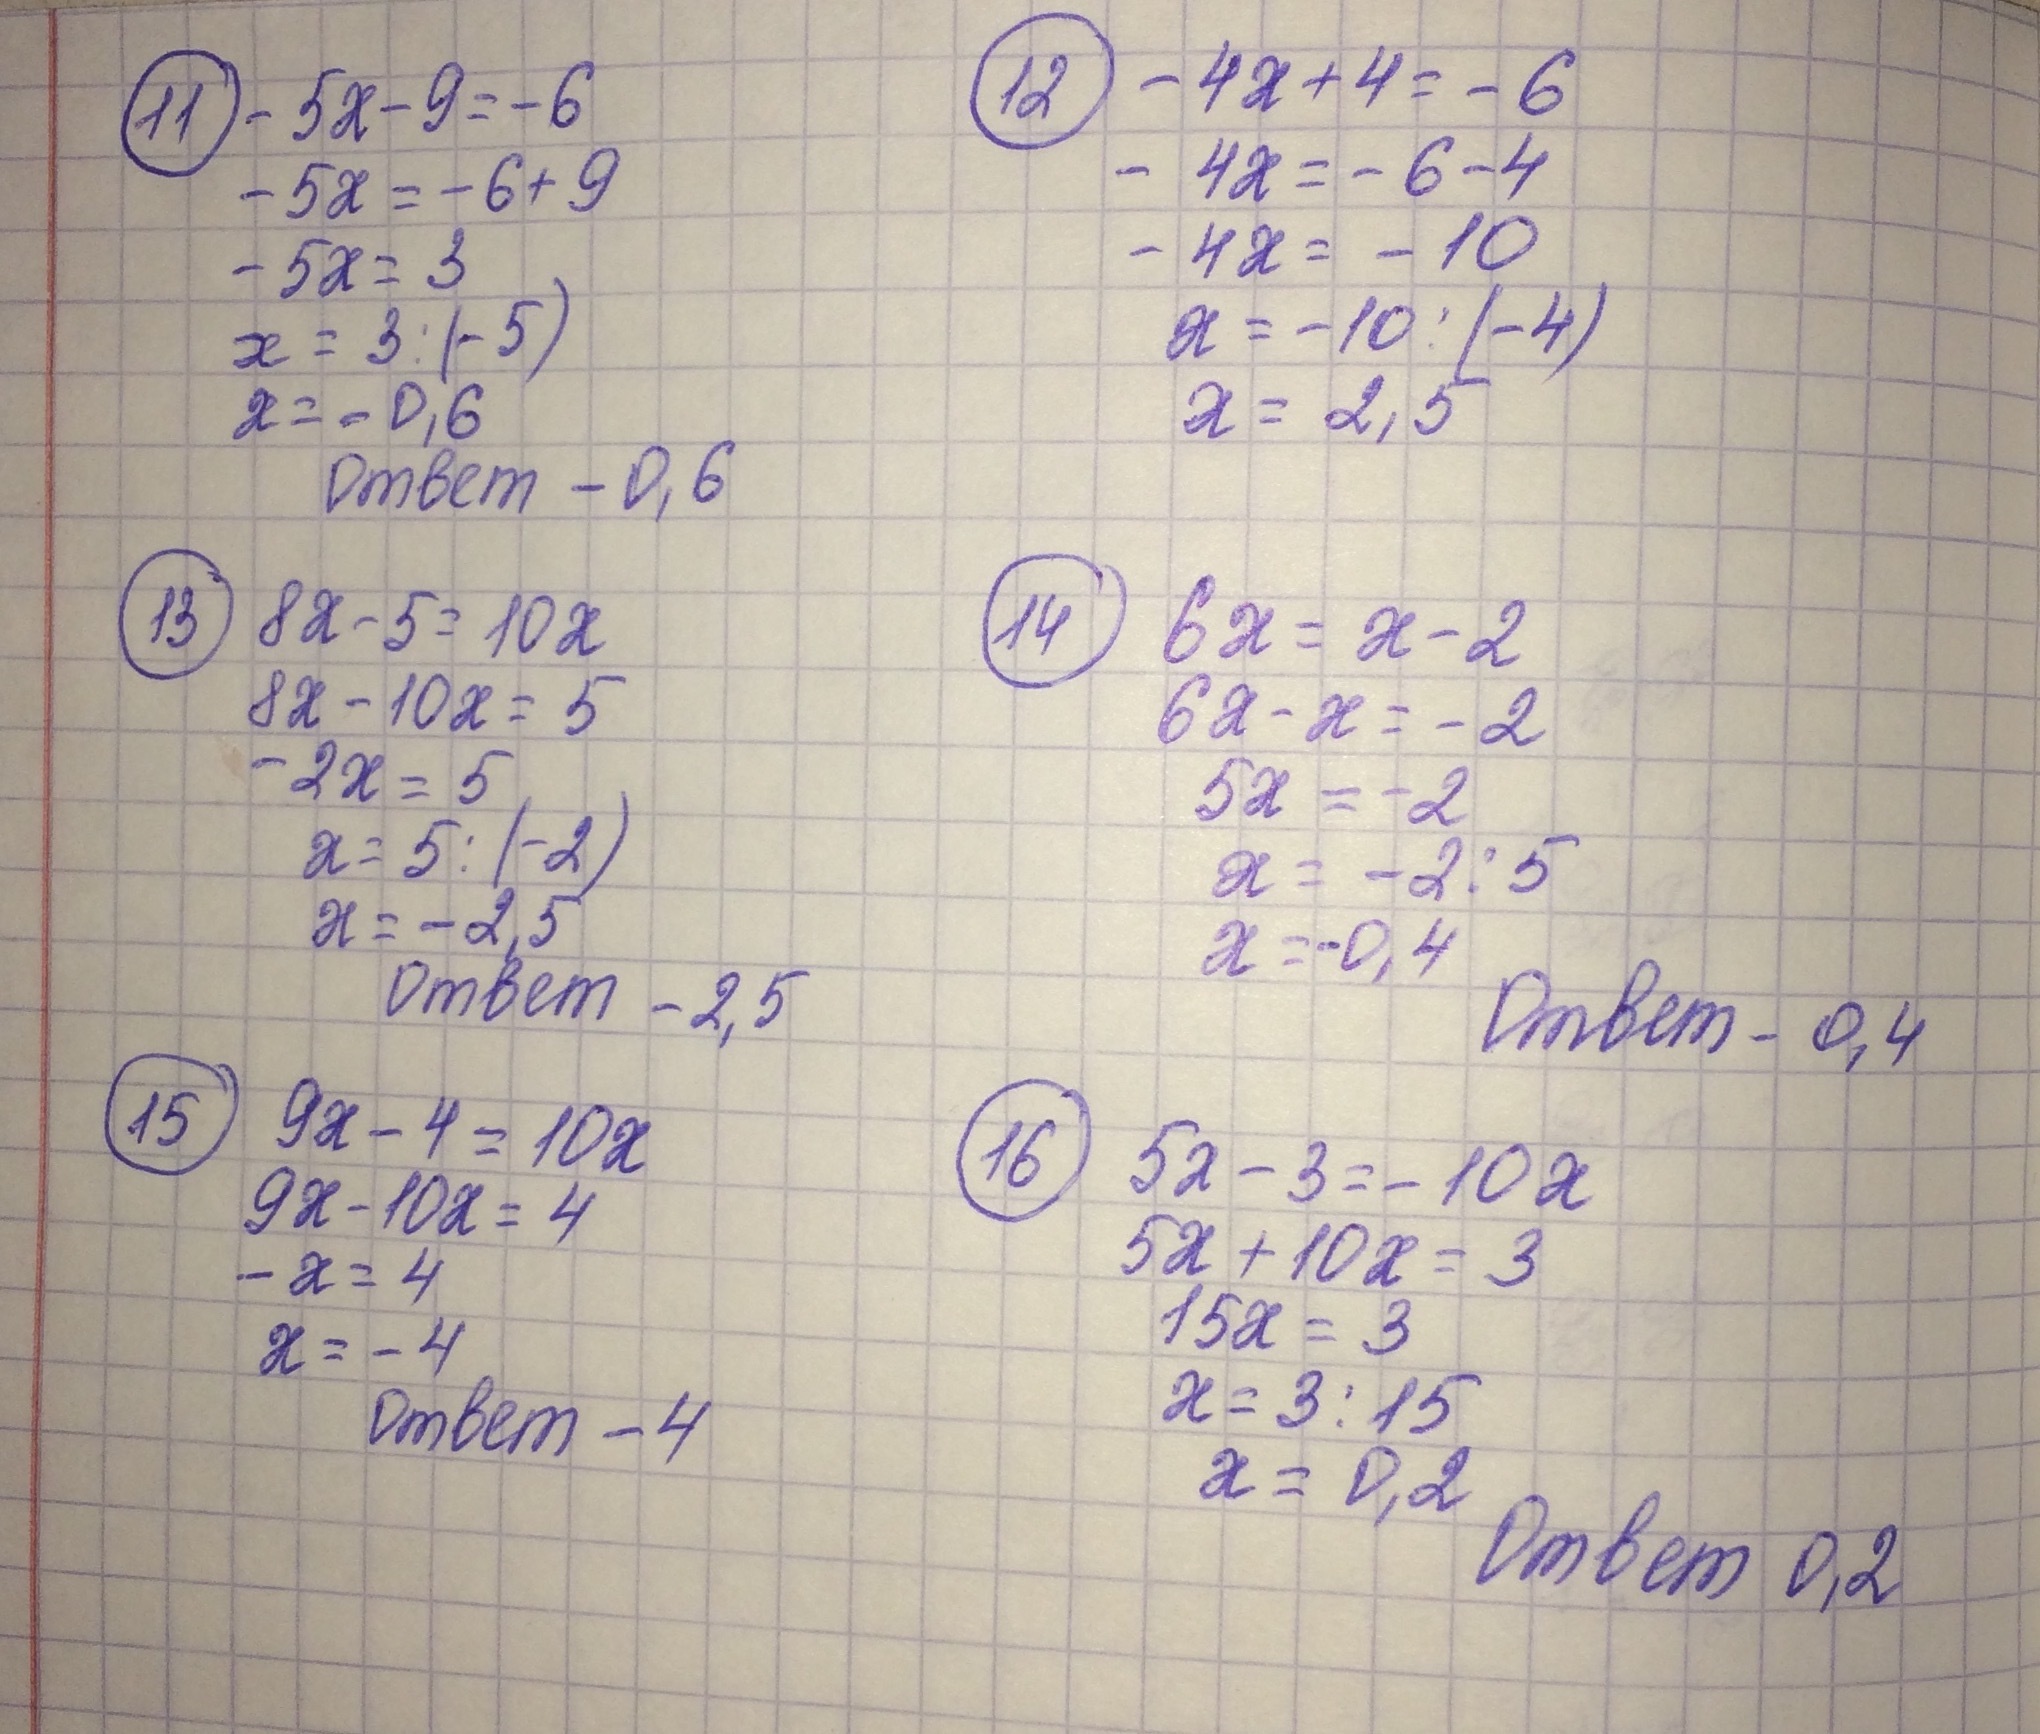 11 - 5x - 9 = - 6
- 5x = - 6 + 9
- 5x = 3
x = 3 : (- 5)
x = - 0,6
Ответ - 0,6
12 - 4x + 4 = - 6
- 4x = - 6 - 4
- 4x = - 10
x = - 10 : (- 4)
x = 2,5
13 8x - 5 = 10x
8x - 10x = 5
- 2x = 5
x = 5 : (- 2)
x = - 2,5
Ответ - 2,5
14 6x = x - 2
6x - x = - 2
5x = - 2
x = - 2 : 5
x = - 0,4
Ответ - 0,4
15 9x - 4 = 10x
9x - 10x = 4
- x = 4
x = - 4
Ответ - 4
16 5x - 3 = - 10x
5x + 10x = 3
15x = 3
x = 3 : 15
x = 0,2
Ответ 0,2